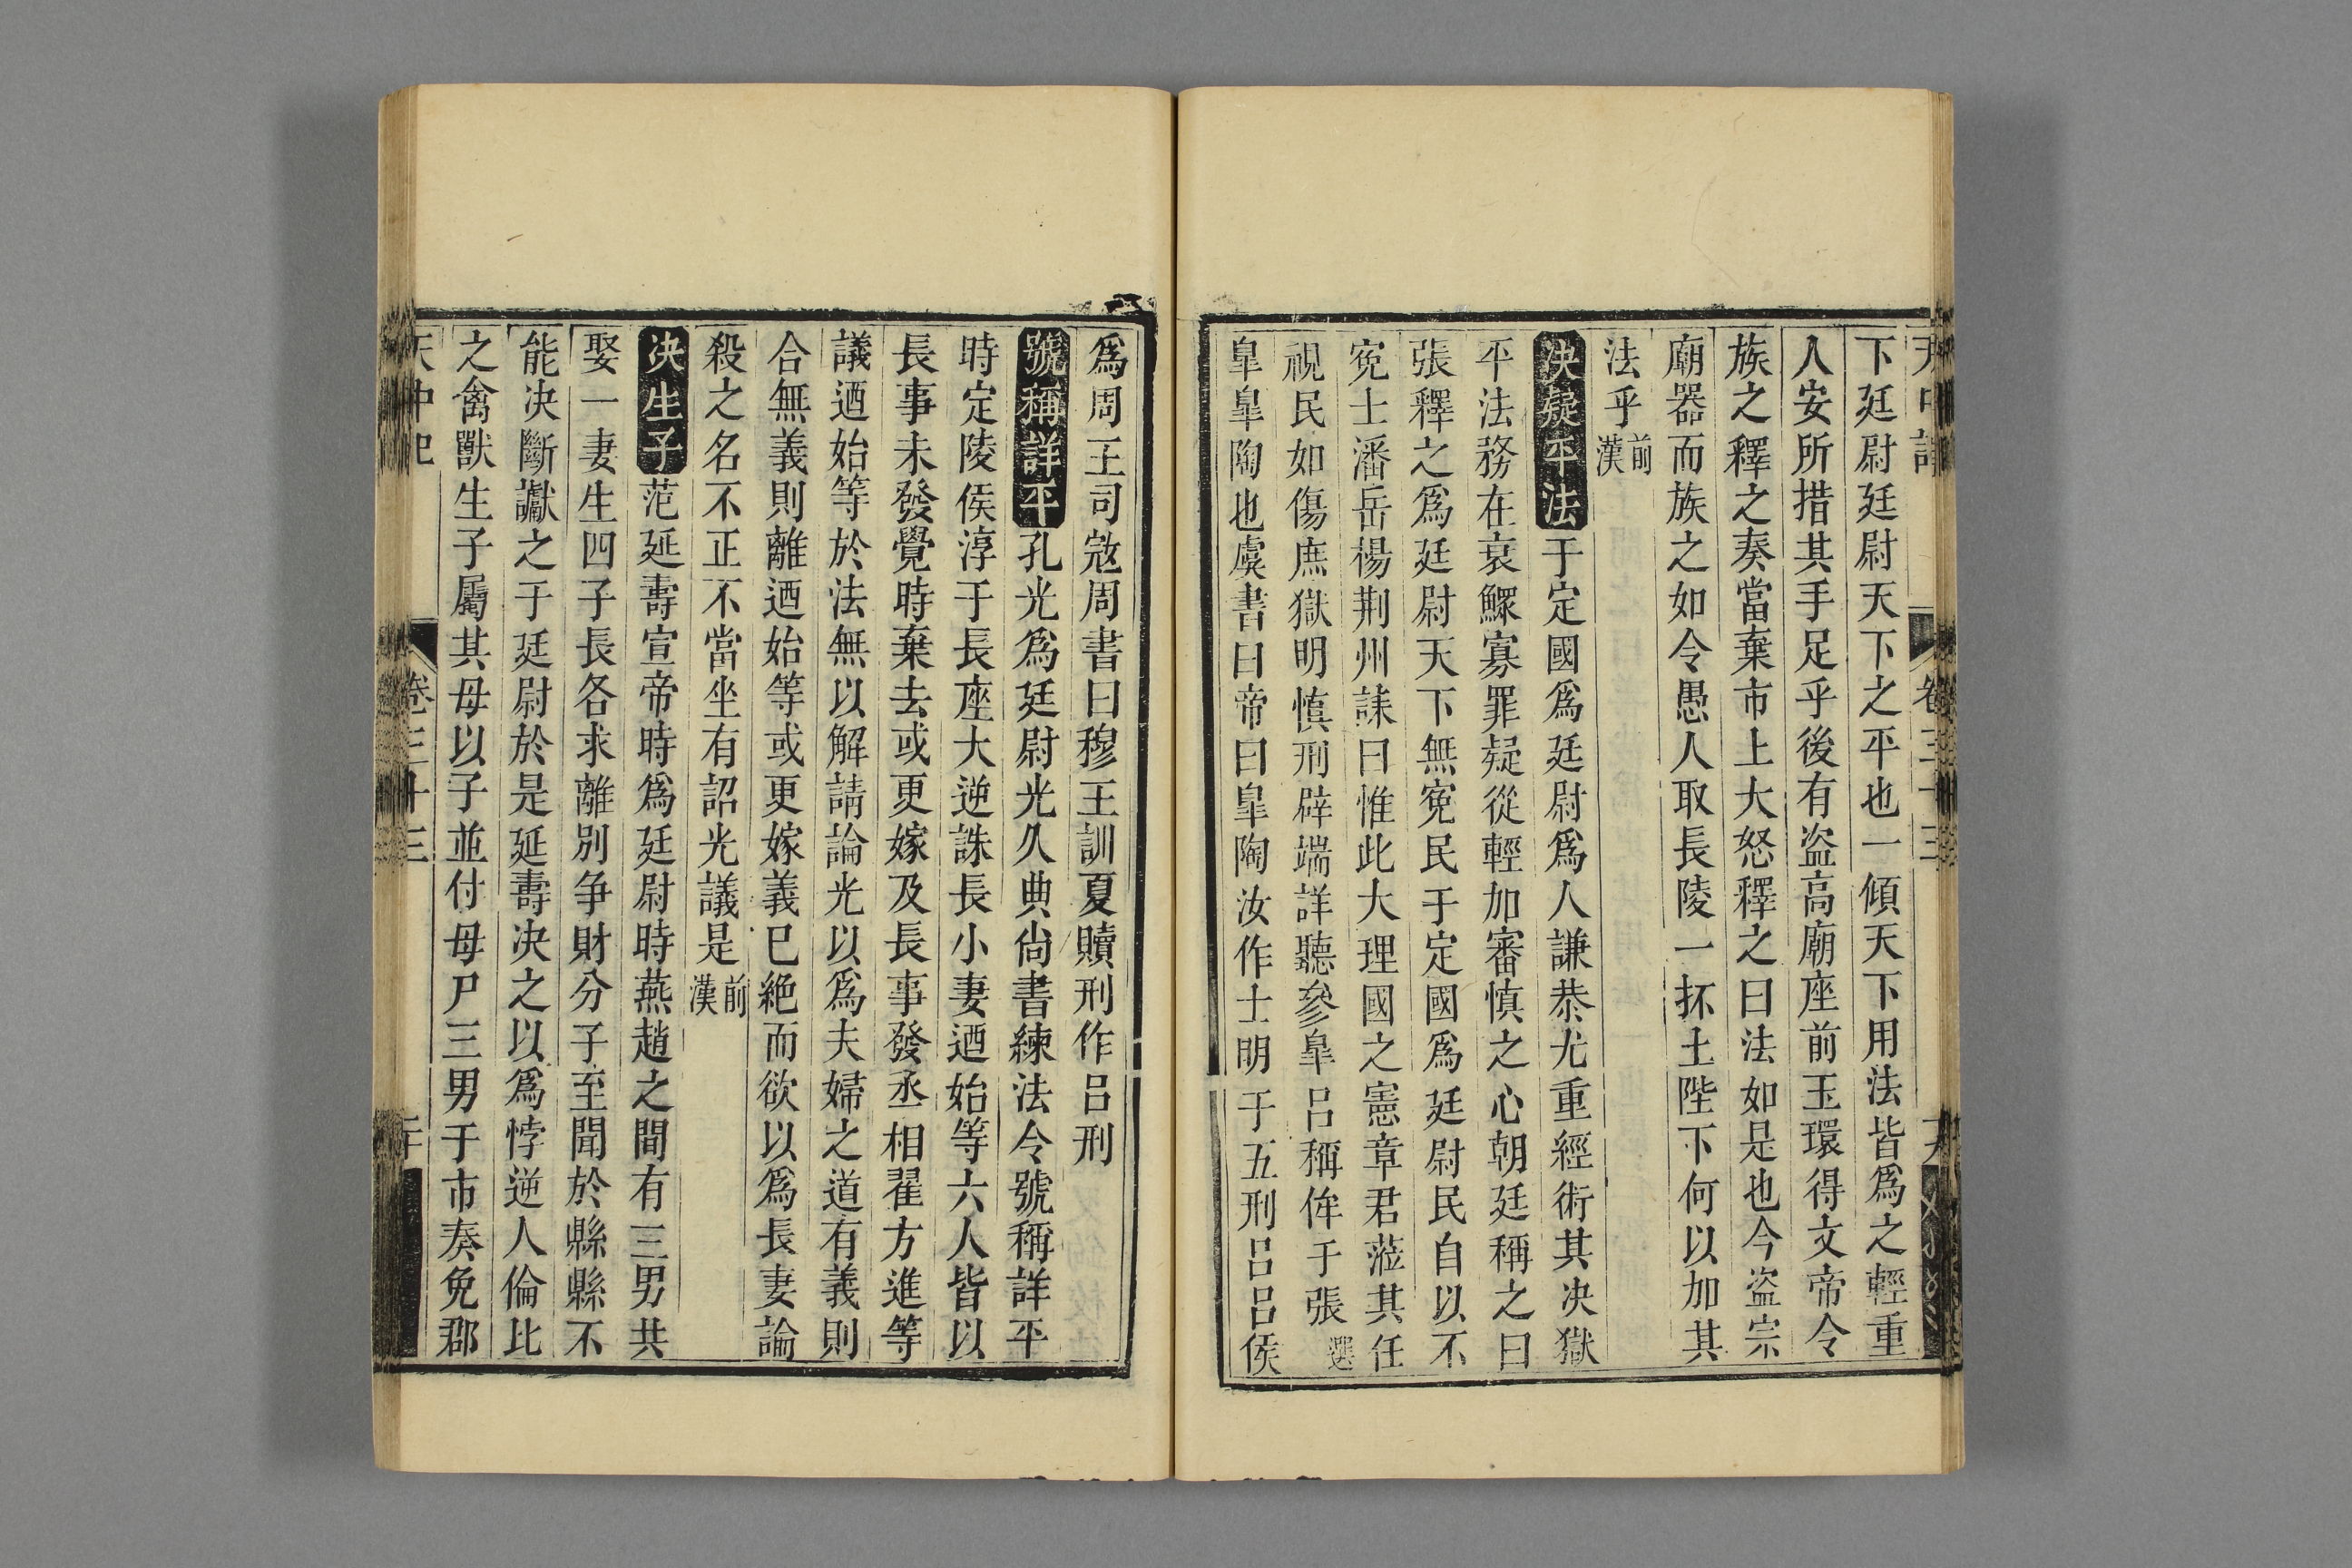 天中記 卷三十三
下廷尉廷尉天下之平也一傾天下用法皆爲之輕重
人安所措其手足乎後有盗高廟座前玉環得文帝令
族之釋之奏當棄市上大怒釋之曰法如是也今盗宗
廟器而族之如令愚人取長陵一抔土陛下何以加其
法乎前漢
決疑平法于定國爲廷尉爲人謙恭尤重經術其决獄
平法務在哀鰥寡罪疑從輕加審慎之心朝廷稱之曰
張釋之爲廷尉天下無寃民于定國爲廷尉民自以不
寃士潘岳楊荆州誄曰惟此大理國之憲章君蒞其任
視民如傷庶獄明慎刑辟端詳聽參皐呂稱侔于張選
皐皐陶也虞書曰帝曰皐陶汝作士明于五刑呂呂侯
爲周王司宼周書曰穆王訓夏贖刑作呂刑
號稱詳平孔光爲廷尉光久典尙書練法令號稱詳平
時定陵侯淳于長座大逆誅長小妻迺始等六人皆以
長事未發覺時棄去或更嫁及長事發丞相翟方進等
議迺始等於法無以解請論光以爲夫婦之道有義則
合無義則離迺始等或更嫁義已絶而欲以爲長妻論
殺之名不正不當坐有詔光議是前漢
决生子范延壽宣帝時爲廷尉時燕趙之間有三男共
娶一妻生四子長各求離別争財分子至聞於縣縣不
能决斷讞之于廷尉於是延壽决之以爲悖逆人倫比
之禽獸生子屬其母以子並付母尸三男于市奏免郡
天中記 卷三十三 二十